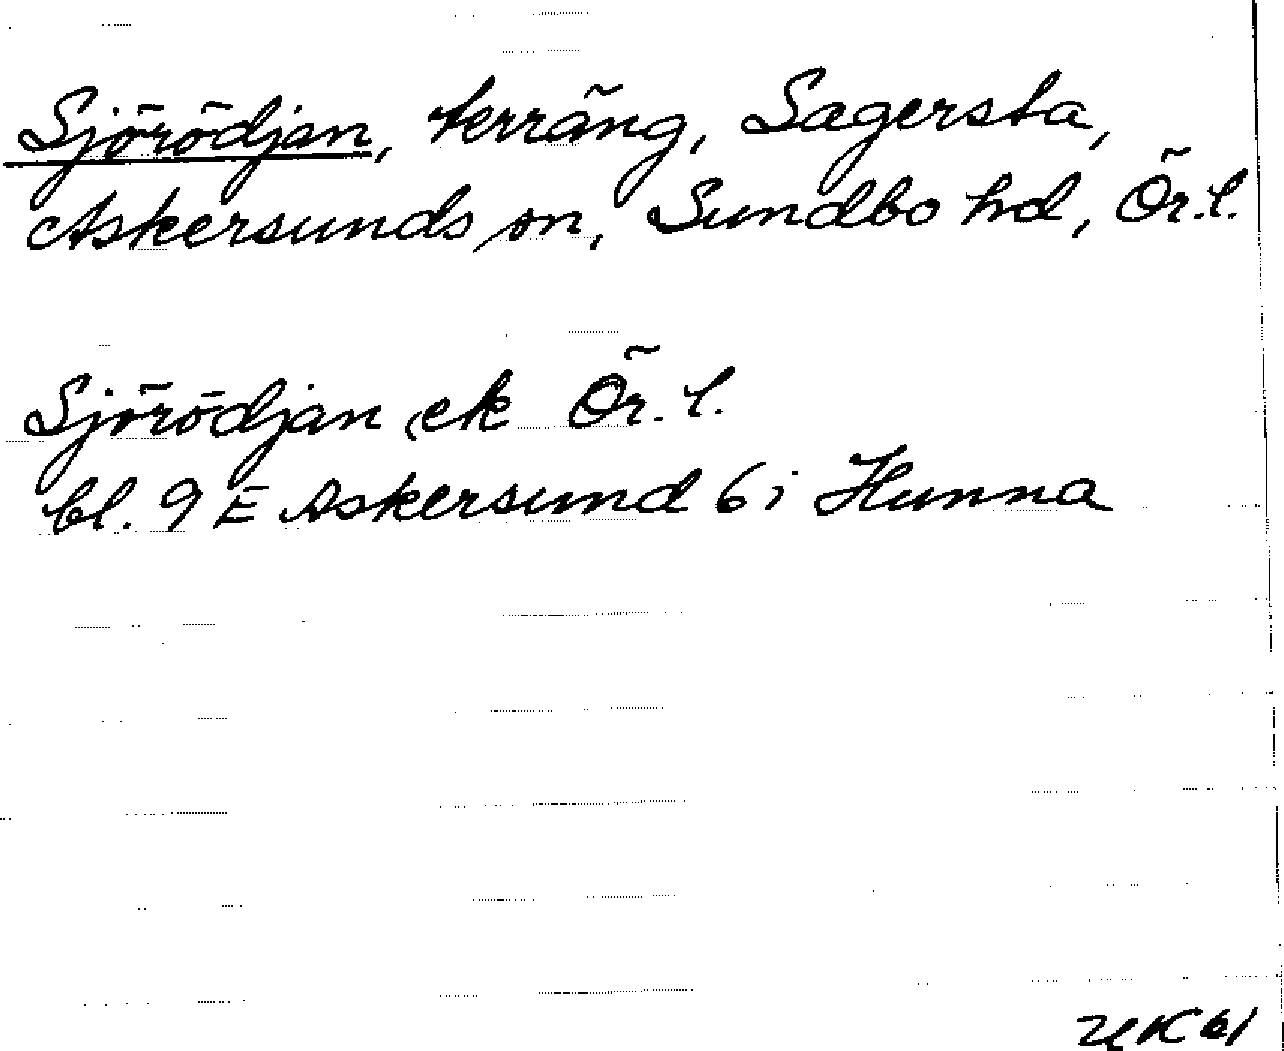 Sjörödjan, terräng, Sagersta,
Askersunds sn, Sundbo hd, Ör.l.
Sjörödjan ek Ör.l.
bl. 9 E Askersund 6 i Hunna